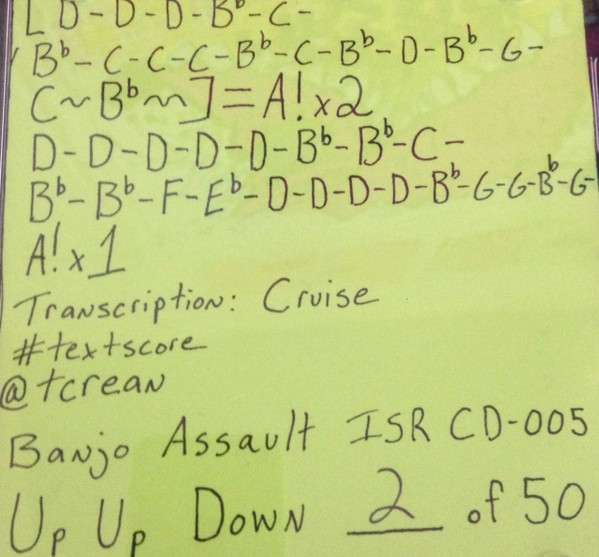 [ D-D-D-D-Bᵇ-C-
Bᵇ-C-C-C-Bᵇ-C-Bᵇ-D-Bᵇ-G-
C~Bᵇ~] = A! x2
D-D-D-D-D-Bᵇ-Bᵇ-C-
Bᵇ-Bᵇ-F-Eᵇ-D-D-D-D-Bᵇ-G-G-Bᵇ-G-
A! x 1
Transcription: Cruise
#textscore
@tcrean
Banjo Assault ISR CD-005
Up Up Down 2 of 50